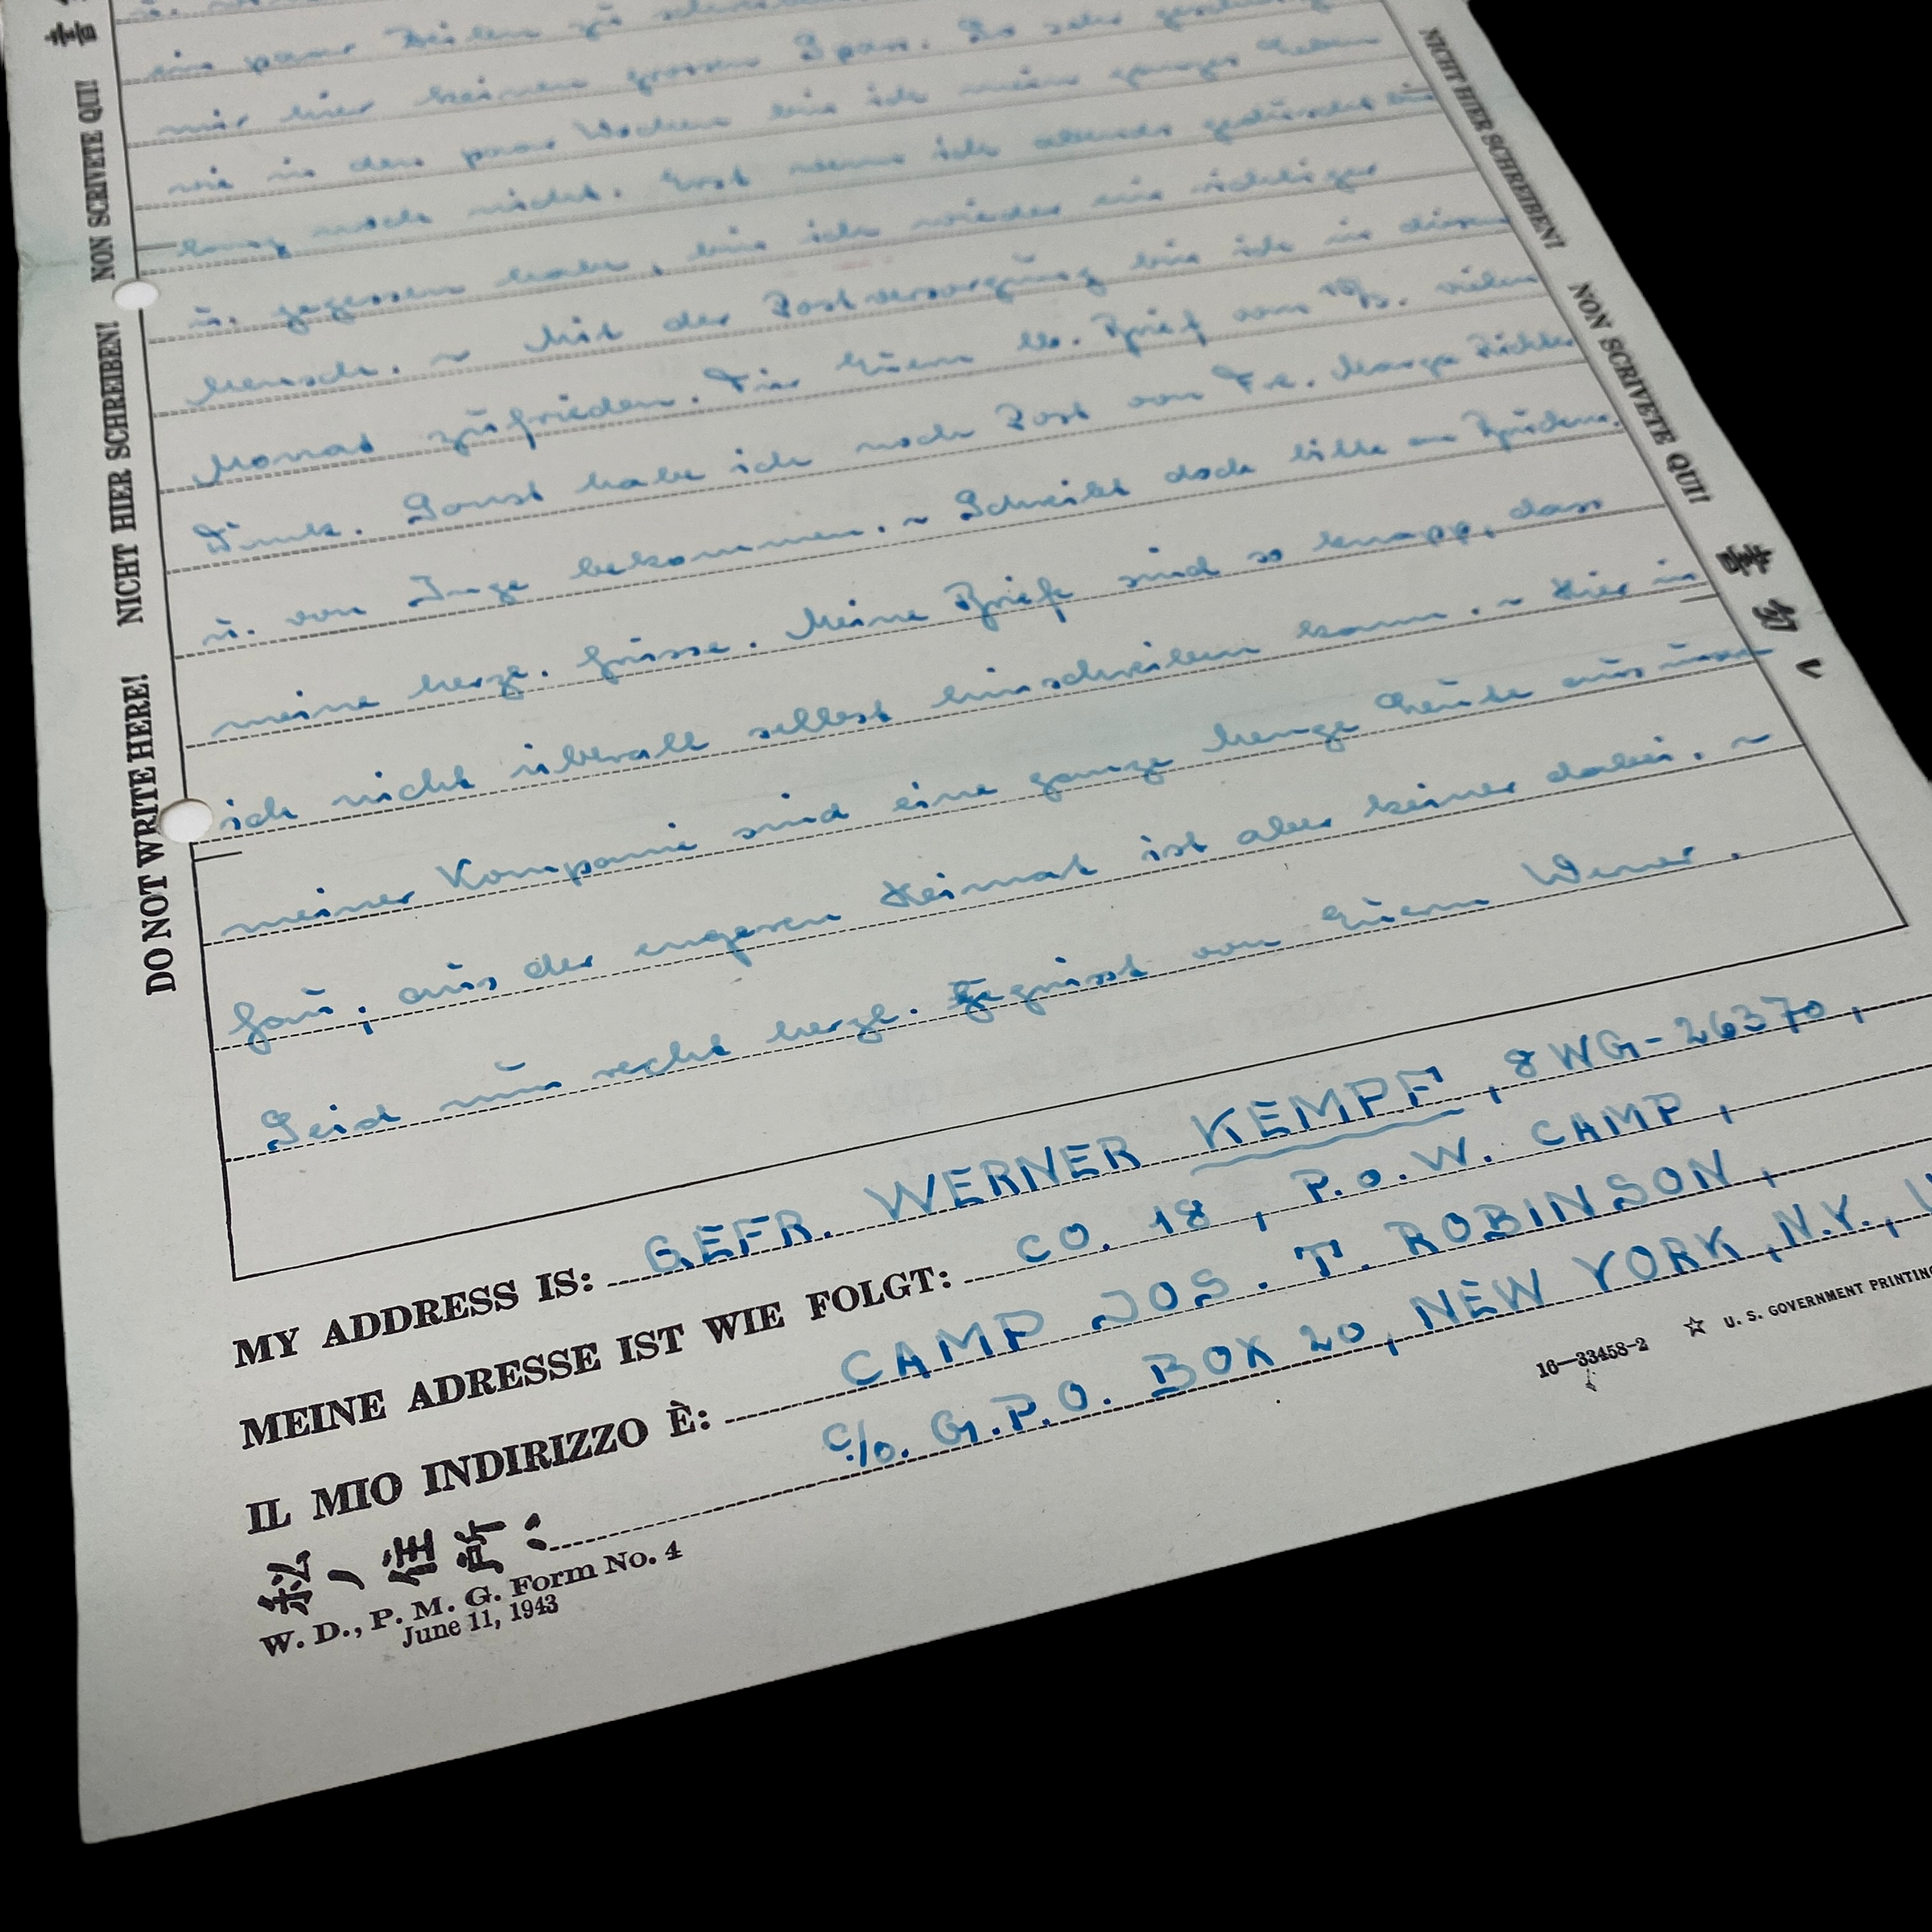 ein paar Zeilen zu
mir hier keinen grossen Spass. So sehr
wie in den paar Wochen bin ich mein ganzes Leben
lang noch nicht. Erst wenn ich abends geduscht bin
u. gegessen habe, bin ich wieder ein richtiger
Mensch. ~ Mit der Postversorgung bin ich in diesem
Monat zufrieden. Für Euern lb. Brief vom vielen
Dank. Sonst habe ich noch Post von Fr. Marga
u. von Inge bekommen. ~ Schreibt doch bitte an
meine herzl. Grüsse. Meine Briefe sind so knapp, dass
ich nicht überall selbst hinschreiben kann. ~ Hier in
meiner Kompanie sind eine ganze Menge Leute aus
Gau, aus der engeren Heimat ist aber keiner dabei. ~
Seid nun recht herzl. gegrüsst von Euerm Werner.
MY ADDRESS IS: GEFR. WERNER KEMPF, 8 WG-26370,
MEINE ADRESSE IST WIE FOLGT: CO. 18, P.O.W. CAMP,
IL MIO INDIRIZZO È: CAMP JOS. T. ROBINSON,
私ノ住所: C/O. G.P.O. BOX 20, NEW YORK, N.Y.,
W. D., P. M. G. Form No. 4
June 11, 1943
16—33458-2 ☆ U. S. GOVERNMENT PRINTING
DO NOT WRITE HERE! NICHT HIER SCHREIBEN! NON SCRIVETE QUI!
NICHT HIER SCHREIBEN! NON SCRIVETE QUI!